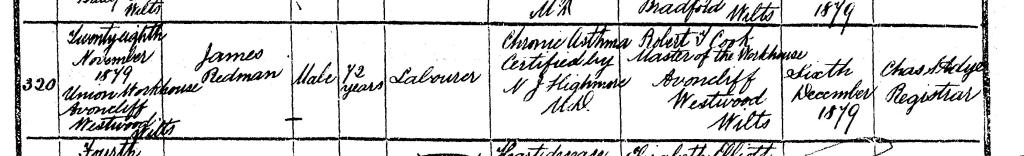 Wilts
M.D.
Bradford Wilts
1879
320
Twenty eighth
November
1879
Union Workhouse
Avoncliff
Westwood
Wilts
James
Redman
Male
72
years
Labourer
Chronic Asthma
Certified by
N J Highmore
M.D.
Robert T Cook
Master of the Workhouse
Avoncliff
Westwood
Wilts
Sixth
December
1879
Chas
Registrar
Fourth
Elizabeth Elliott